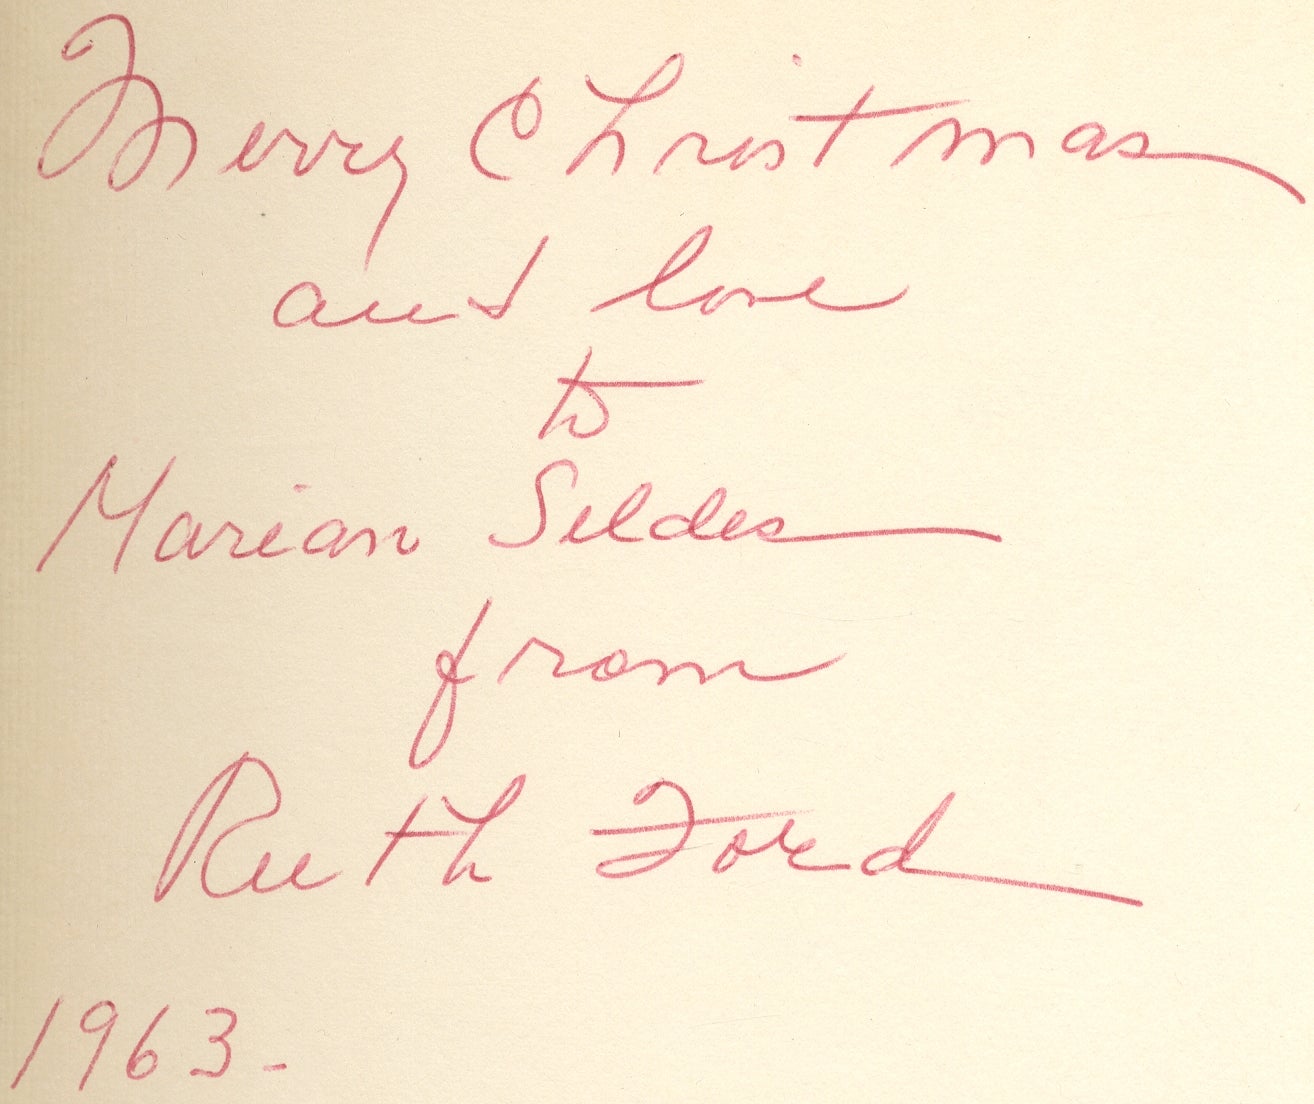 Merry Christmas
and love
to
Marian Seldes
from
Ruth Ford
1963-